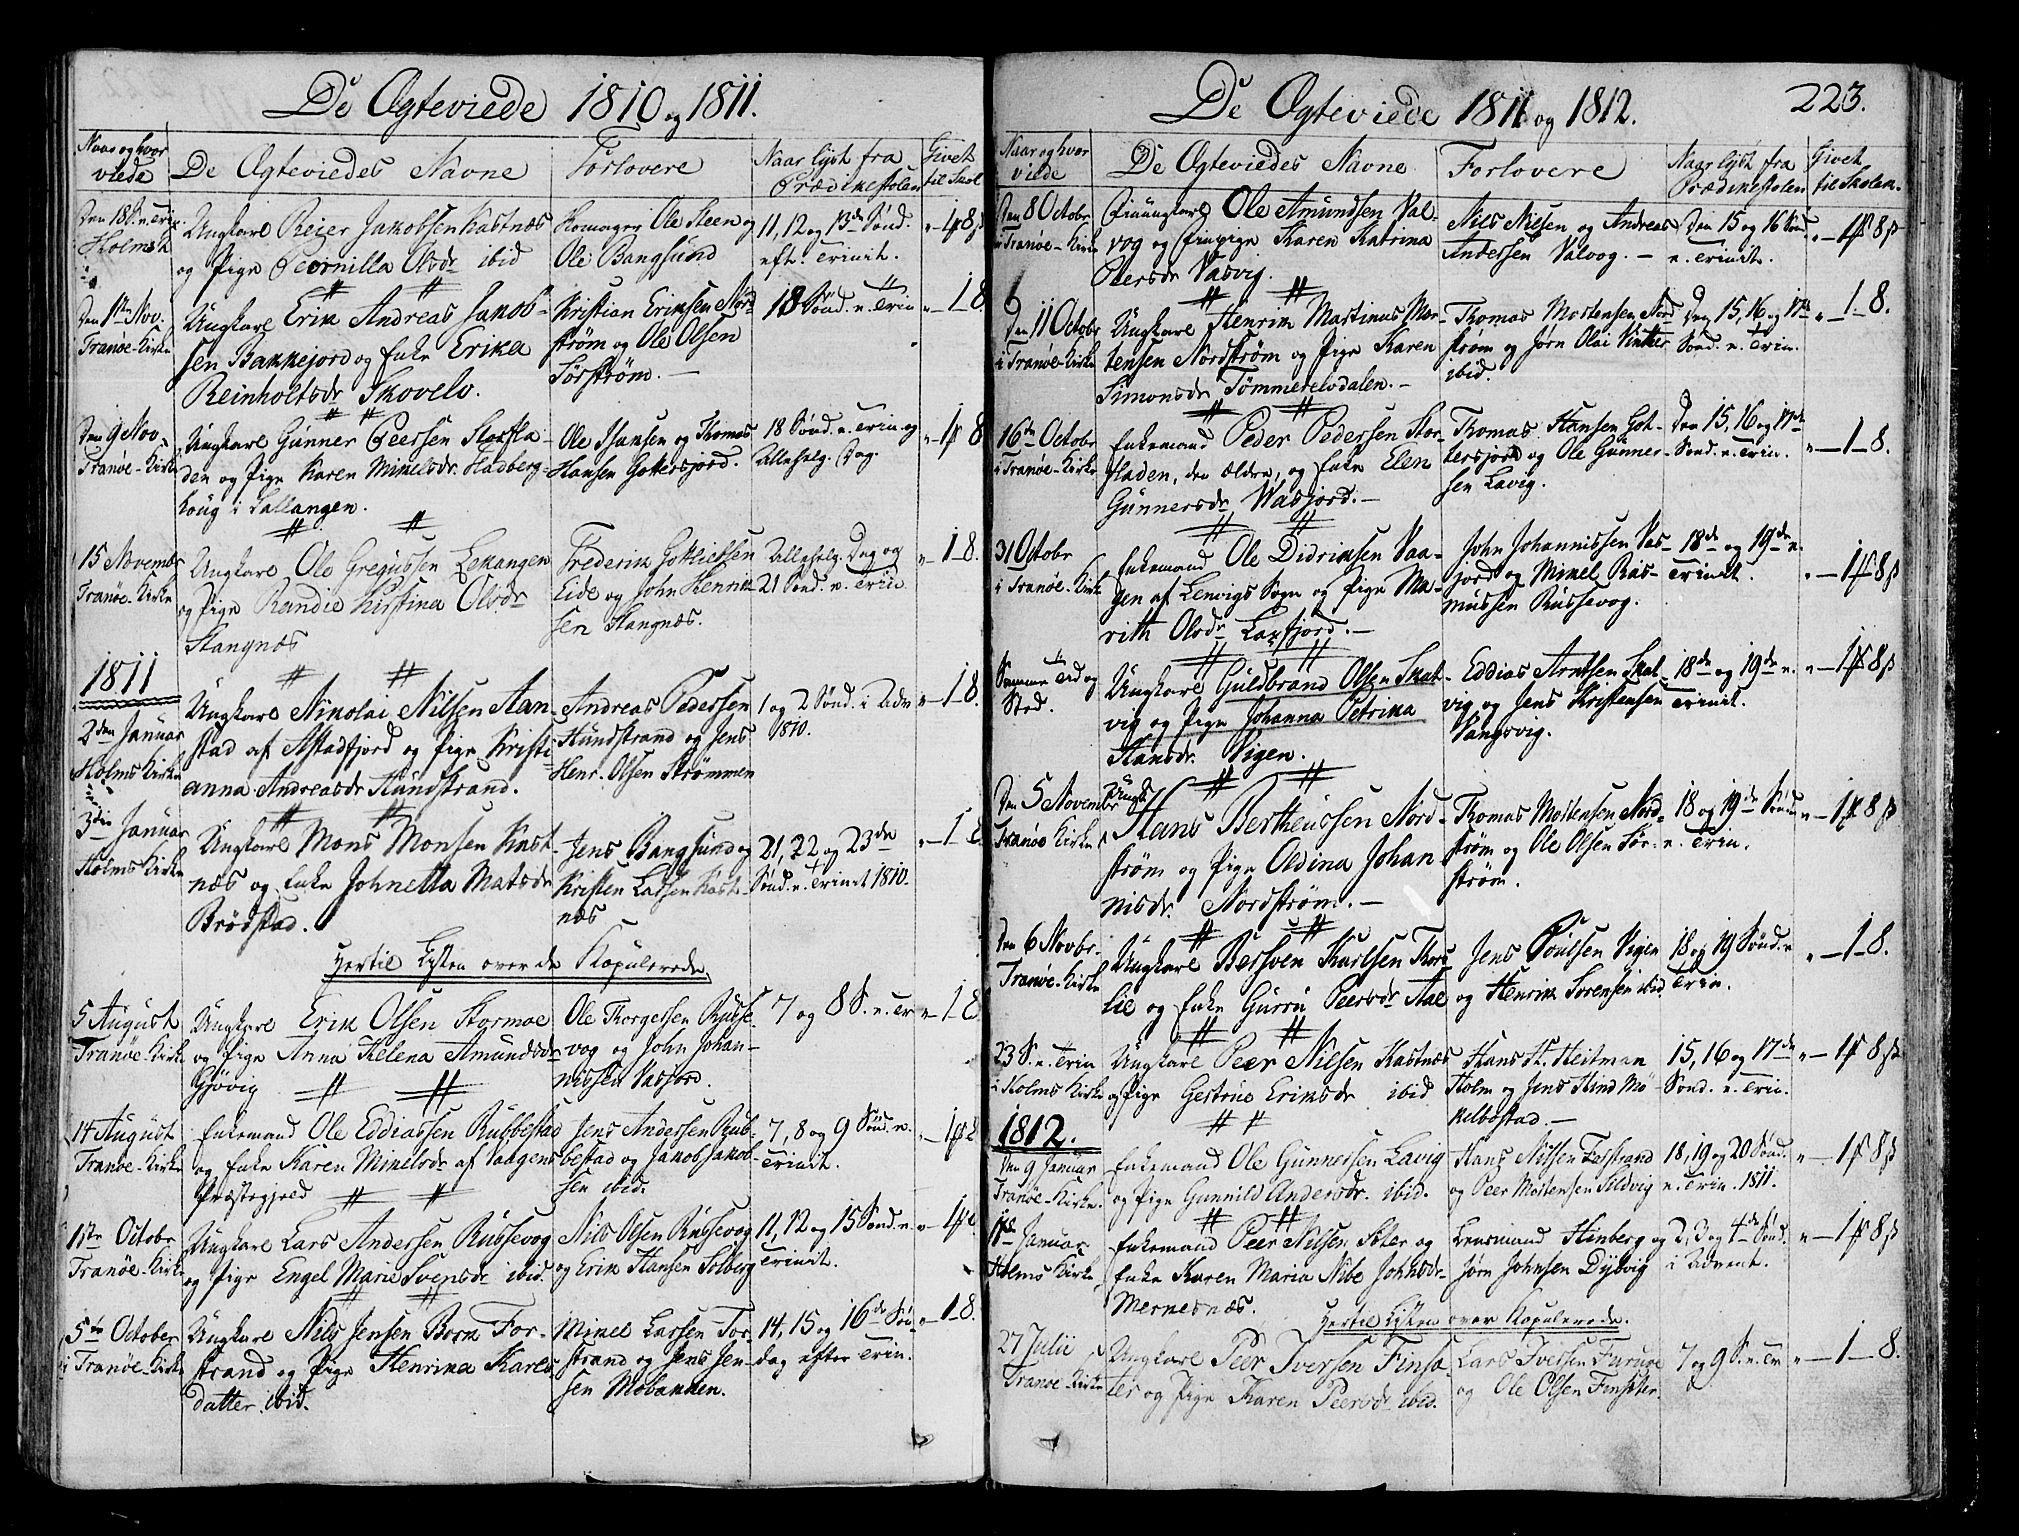 De Ægteviede 1810 og 1811.
Naar og hvor viede
De Ægteviedes Navne
Forlovere
Naar lyst fra Prædikestolen
Givet til Skol
Den 18 S. e. Trin.
Holms K
Ungkarl Reier Jakobsen Kastnæs
og Pige Pernilla Olsdr ibid
Ole Steen og
Ole Bangsund
11, 12 og 13de Sønd.
eft. Trinit.
„ - 1 # 8 ß
Den 1ste Nov.
Tranøe-Kirke
Ungkarl Erik Andreas Jakob-
sen Bakkejord og Enke Erika
Reinholtsdr Skovelv.
Kristian Eriksen Nord
strøm og Ole Olsen
Sørstrøm. -
18 Sønd. e. Trin
„ - 1 8.
Den 9 Nov.
Tranøe-Kirke
Ungkarl Gunner Peersen Storsla-
den og Pige Karen Mikelsdr. Hadberg-
houg i Sallangen.
Ole Hansen og Thomas
Hansen Gottersjord.
18 Sønd. e. Trin. og
Allehelg. Dag.
„ - 1 # 8
15 Novembr
Tranøe-Kirke
Ungkarl Ole Gregussen Lekangen
og Pige Randie Kirstina Olsdr
Stangnæs
Frederik Gotlicksen
Eide og John Henrik
sen Stangnæs.
Allehelg. Dag og
21 Sønd. e. Trin
„ - 1 8.
1811
2den Januar
Holms Kirke
Ungkarl Nikolai Nilsen Aan-
stad af Astadfjord og Pige Kristi-
anna Andreasdr Hundstrand.
Andreas Pedersen
Hundstrand og Jens
Henr. Olsen Strømmen
1 og 2 Sønd. i Adv
1810.
„ - 1 8.
3die Januar
Holms Kirke
Ungkarl Mons Monsen Kast-
næs og Enke Johnetta Matsdr
Brødstad.
Jens Bangsund og
Kristen Larsen Kast-
næs
21, 22 og 23de
Sønd. e. Trinit 1810.
„ - 1 8
Hertil Listen over de Kopulerede
5 August
Tranøe-Kirke
Ungkarl Erik Olsen Stormoe
og Pige Anna Helena Amundsdr
Gjøvig
Ole Thorgelsen Russe-
vog og John Johan-
nissen Vasjord.
7 og 8 S. e. Tr
„ - 1 8
14 August
Tranøe-Kirke
Enkemand Ole Eddiassen Rubbestad
og Enke Karen Mikelsdr af Vaagens
Præstegjeld
Jens Andersen Rub-
bestad og Jakob Jakob-
sen ibid.
7, 8 og 9 Sønd. e.
Trinit.
„ - 1 # 8
1ste Octobr
Tranøe-Kirke
Ungkarl Lars Andersen Russevog
og Pige Engel Marie Svensdr ibid.
Nils Olsen Russevog
og Erik Hansen Solberg
11, 12 og 15 Sønd. e.
Trinit.
„ - 1 # 8
5te October
i Tranøe-Kirke
Ungkarl Nils Jensen Bork For-
strand og Pige Henrika Karls
datter. ibid.
Mikel Larsen For-
strand og Jens Jen-
sen Mobakken.
14, 15 og 16de Søn
dag efter Trin.
„ - 1 8.
De Ægteviede 1811 og 1812.
223.
Naar og hvor viede
De Ægteviedes Navne
Forlovere
Naar lyst fra Prædikestolen
Givet til Skolen.
Den 8 Octobr
i Tranøe-Kirke
Finungkarl Ole Amundsen Val-
vog og Finpige Karen Katrina
Peersdr Vasvig.
Nils Nielsen og Andreas
Andersen Valvog. -
Den 15 og 16 Sønd
e. Trinit.
„ - 1 # 8 ß
Den 11 Octobr
i Tranøe-Kirke
Ungkarl Henrik Martinus Mor-
tensen Nordstrøm og Pige Karen
Simonsdr Tømmerelvdalen. -
Thomas Mortensen Nord
strøm og Jørn Olai Vinther
ibid.
Den 15, 16 og 17de
Sønd. e. Trin.
„ - 1 - 8.
16de Octobr
i Tranøe-Kirke
Enkemand Peder Pedersen Stor-
sladen, den ældre, og Enke Elen
Gunnersdr Wasjord. -
Thomas Hansen Got-
tersjord og Ole Gunner-
sen Lavig.
Den 15, 16 og 17de
Sønd. e. Trin.
„ - 1 - 8.
31 Octobr
i Tranøe-Kirke
Enkemand Ole Didriksen Vaa-
gen af Lenvigs Sogn og Pige Ma-
rith Olsdr Laxfjord. -
John Johannissen Vas-
jord og Mikel Ras-
mussen Russevog.
18de og 19de e.
Trinit.
„ - 1 # 8 ß
Samme Tid og
Sted.
Ungkarl Guldbrand Olsen Skat-
vig og Pige Johanna Petrika
Hansdr. Vigen.
Eddias Arntsen Skat-
vig og Jens Kristensen
Vangsvig.
18de og 19de e.
Trinit.
„ - 1 # 8 ß
Den 5 November
Tranøe Kirke
Ungk.
Hans Bertheussen Nord-
strøm og Pige Oldina Johan
nisdr. Nordstrøm. -
Thomas Mortensen Nord-
strøm og Ole Olsen Sør-
strøm.
18 og 19de Sønd
e. Trin.
„ - 1 # 8 ß
Den 6 Novbr.
Tranøe-Kirke
Ungkarl Bersven Karlsen Thors
lie og Enke Gurru Peersdr Aae
Jens Poulsen Vigen
og Henrik Sørensen ibid
18 og 19 Sønd. e
Trin.
„ - 1 - 8.
23 S. e. Trin
i Holms Kirke
Ungkarl Peer Nilsen Kastnæs
og Pige Gestrue Eriksdr ibid
Hans H. Heitman
Holm og Jens Hind Mø-
kelbostad. -
15, 16 og 17de
Sønd. e. Trin.
„ - 1 # 8 ß
1812.
Den 9 Januar
Tranøe-Kirke.
Enkemand Ole Gunnersen Lavig
og Pige Gunnild Andersdr. ibid.
Hans Nilsen Folstrand
og Peer Mortensen Sildvig
18, 19 og 20 Sønd.
e. Trin. 1811.
„ - 1 # 8 ß
Januar
Holms Kirke
Enkemand Peer Nilsen Sæter og
Enke Karen Maria Nibe Johnsdr-
Merkesnæs.
Lensmand Hinberg og
Jørn Johnsen Dybvig
2, 3 og 4de Sønd.
i Advent.
„ - 1 # 8 ß
Hertil Listen over Kopulerede.
27 Julii
Tranøe-Kirke
Ungkarl Peer Iversen Finsæ-
ter og Pige Karen Peersdr ibid.
Lars Iversen Furuøe
og Ole Olsen Finsæter.
7 og 9 S. e. Tr
„ - 1 - 8.